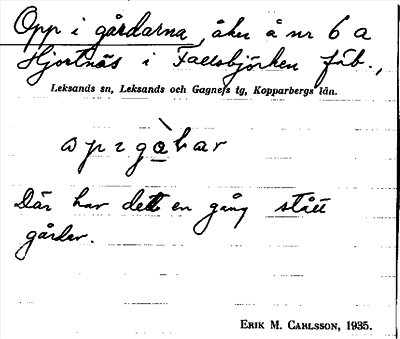 Opp i gårdarna, åker å nr 6 a
Hjortnäs i Fallsbjörken fäb.,
Leksands sn, Leksands och Gagnefs tg, Kopparbergs län.
Där har det en gång stått
gårdar.
ERIK M. CARLSSON, 1935.